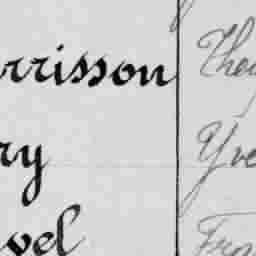 rrisson They
ry Yve
vel Fra